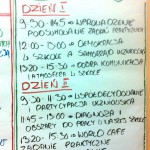 DZIEŃ I
9:30-11:45 → WPROWADZENIE
PODSUMOWANIE ZADAŃ
12:00-13:00 → DEMOKRACJA
W SZKOLE A SAMORZĄD UCZNIOWSKI
13:20-15:30 → DOBRA KOMUNIKACJA
I ATMOSFERA W SZKOLE
DZIEŃ II
9:30-11:30 → WSPÓŁDECYDOWANIE
I PARTYCYPACJA UCZNIOWSKA
11:45-13:00 → DIAGNOZA
OBSZARY DO PRACY W NASZEJ SZKOLE
13:20-15:30 → WORLD CAFE
ZADANIE PRAKTYCZNE